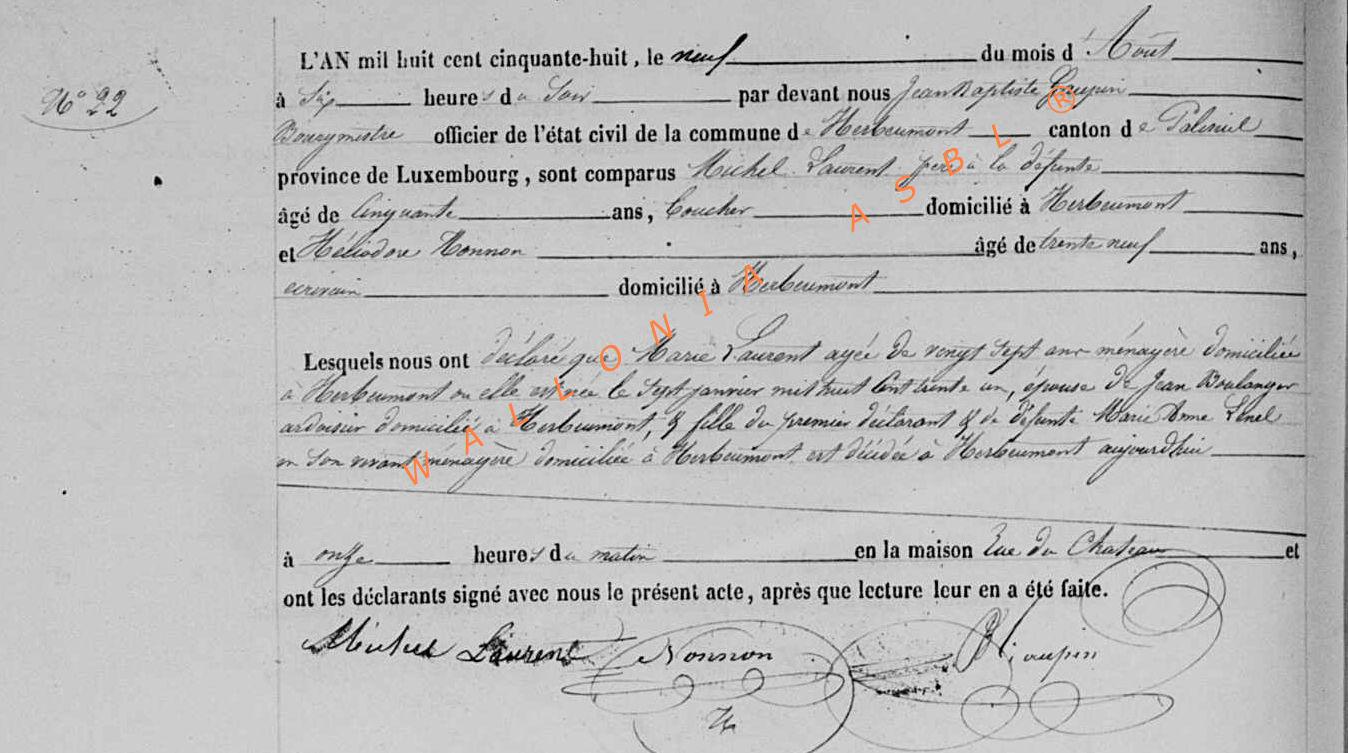 L'AN mil huit cent cinquante-huit, le neuf du mois d'Aout
N° 22
à Six heures du Soir par devant nous Jean Baptiste
Bourgmestre officier de l'état civil de la commune de Herbeumont canton de Paliseul
province de Luxembourg, sont comparus Michel Laurent pere à la défunte
âgé de Cinquante ans, domicilié à Herbeumont
et Héliodore Nonnon âgé de trente neuf ans,
ecrivain domicilié à Herbeumont
Lesquels nous ont déclaré que Marie Laurent agée de vengt Sept ans ménagère domiciliée
à Herbeumont ou elle est née le Sept janvier mil huit Cent trente un, épouse de Jean Boulanger
ardoisier domicilié à Herbeumont, & fille du premier déclarant & de défunte Marie Anne
en Son vivant menagère domiciliée à Herbeumont est décédée à Herbeumont aujourd'hui
à onze heures du matin en la maison Rue du Chateau et
ont les déclarants signé avec nous le présent acte, après que lecture leur en a été faite.
Michel Laurent Nonnon
WALLONIA ASBL ®